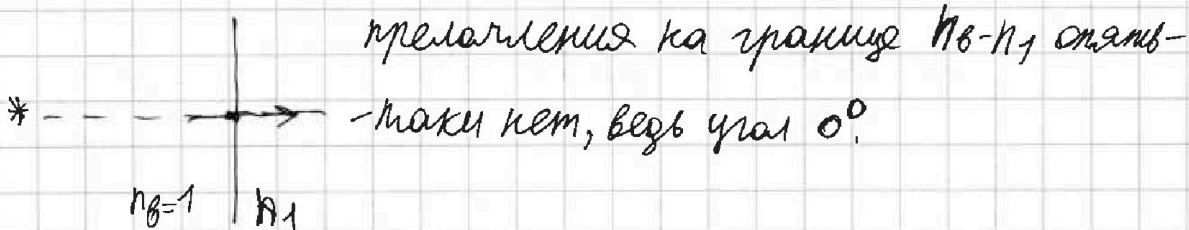 преломления на границе nв-n1 опять-
* -таки нет, ведь угол 0°.
nв=1 n1